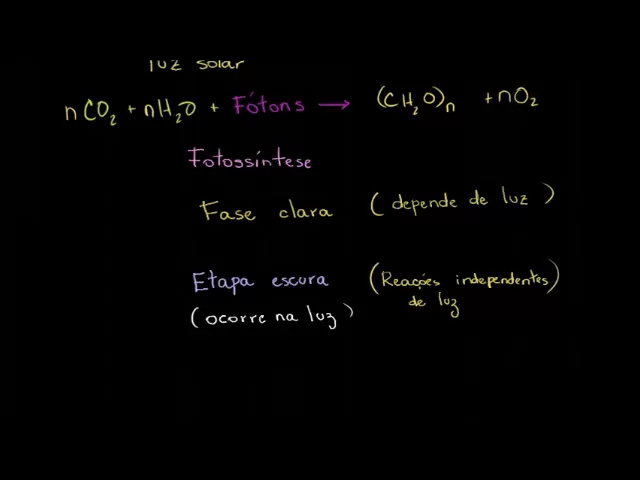 luz solar
nCO₂ + nH₂O + Fótons → (CH₂O)n + nO₂
Fotossíntese
Fase clara (depende de luz)
Etapa escura (Reações independentes
de luz
(ocorre na luz)